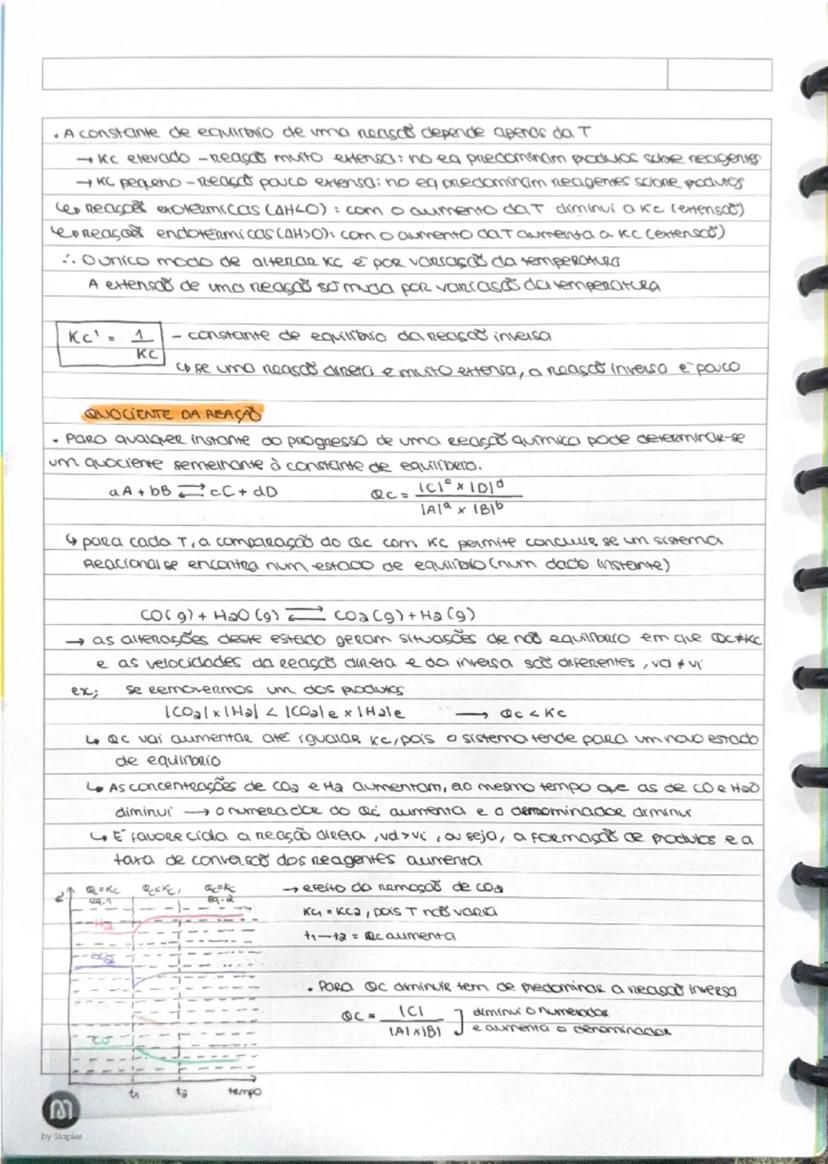 . A constante de equilíbrio de uma reação depende apenas da T
→ Kc elevado - Reação muito extensa: no eq predominam produtos sobre reagentes
→ Kc pequeno - Reação pouco extensa: no eq predominam reagentes sobre produtos
Reações exotérmicas (ΔH<0) : com o aumento da T diminui a Kc (extensão)
Reações endotérmicas (ΔH>0): com o aumento da T aumenta a Kc (extensão)
∴ O único modo de alterar Kc é por variação da temperatura
A extensão de uma reação só muda por variação da temperatura
Kc' = 1/Kc - constante de equilíbrio da reação inversa
↳ se uma reação direta é muito extensa, a reação inversa é pouco
QUOCIENTE DA REAÇÃO
. Para qualquer instante do progresso de uma reação química pode determinar-se
um quociente semelhante à constante de equilíbrio.
aA + bB ⇄ cC + dD Qc = |C|ᶜ × |D|ᵈ / |A|ᵃ × |B|ᵇ
↳ para cada T, a comparação do Qc com Kc permite concluir se um sistema
reacional se encontra num estado de equilíbrio (num dado instante)
CO(g) + H2O(g) ⇄ CO2(g) + H2(g)
→ as alterações deste estado geram situações de não equilíbrio em que Qc≠Kc
e as velocidades da reação direta e da inversa são diferentes, vd ≠ vi
ex; se removermos um dos produtos
|CO2| x |H2| < |CO2|e x |H2|e → Qc < Kc
↳ Qc vai aumentar até igualar Kc, pois o sistema tende para um novo estado
de equilíbrio
↳ As concentrações de CO2 e H2 aumentam, ao mesmo tempo que as de CO e H2O
diminui → o numerador do Qc aumenta e o denominador diminui
↳ É favorecida a reação direta, vd>vi, ou seja, a formação de produtos e a
taxa de conversão dos reagentes aumenta
Qc=Kc Qc<Kc Qc=Kc
eq.1 eq.2
H2
CO2
CO
t1 t2 tempo
→ efeito da remoção de CO2
Kc1 = Kc2, pois T não varia
t1-t2 = Qc aumenta
. Para Qc diminuir tem de predominar a reação inversa
Qc = |C| / |A|x|B| ] diminui o numerador
e aumenta o denominador
M
by Staples